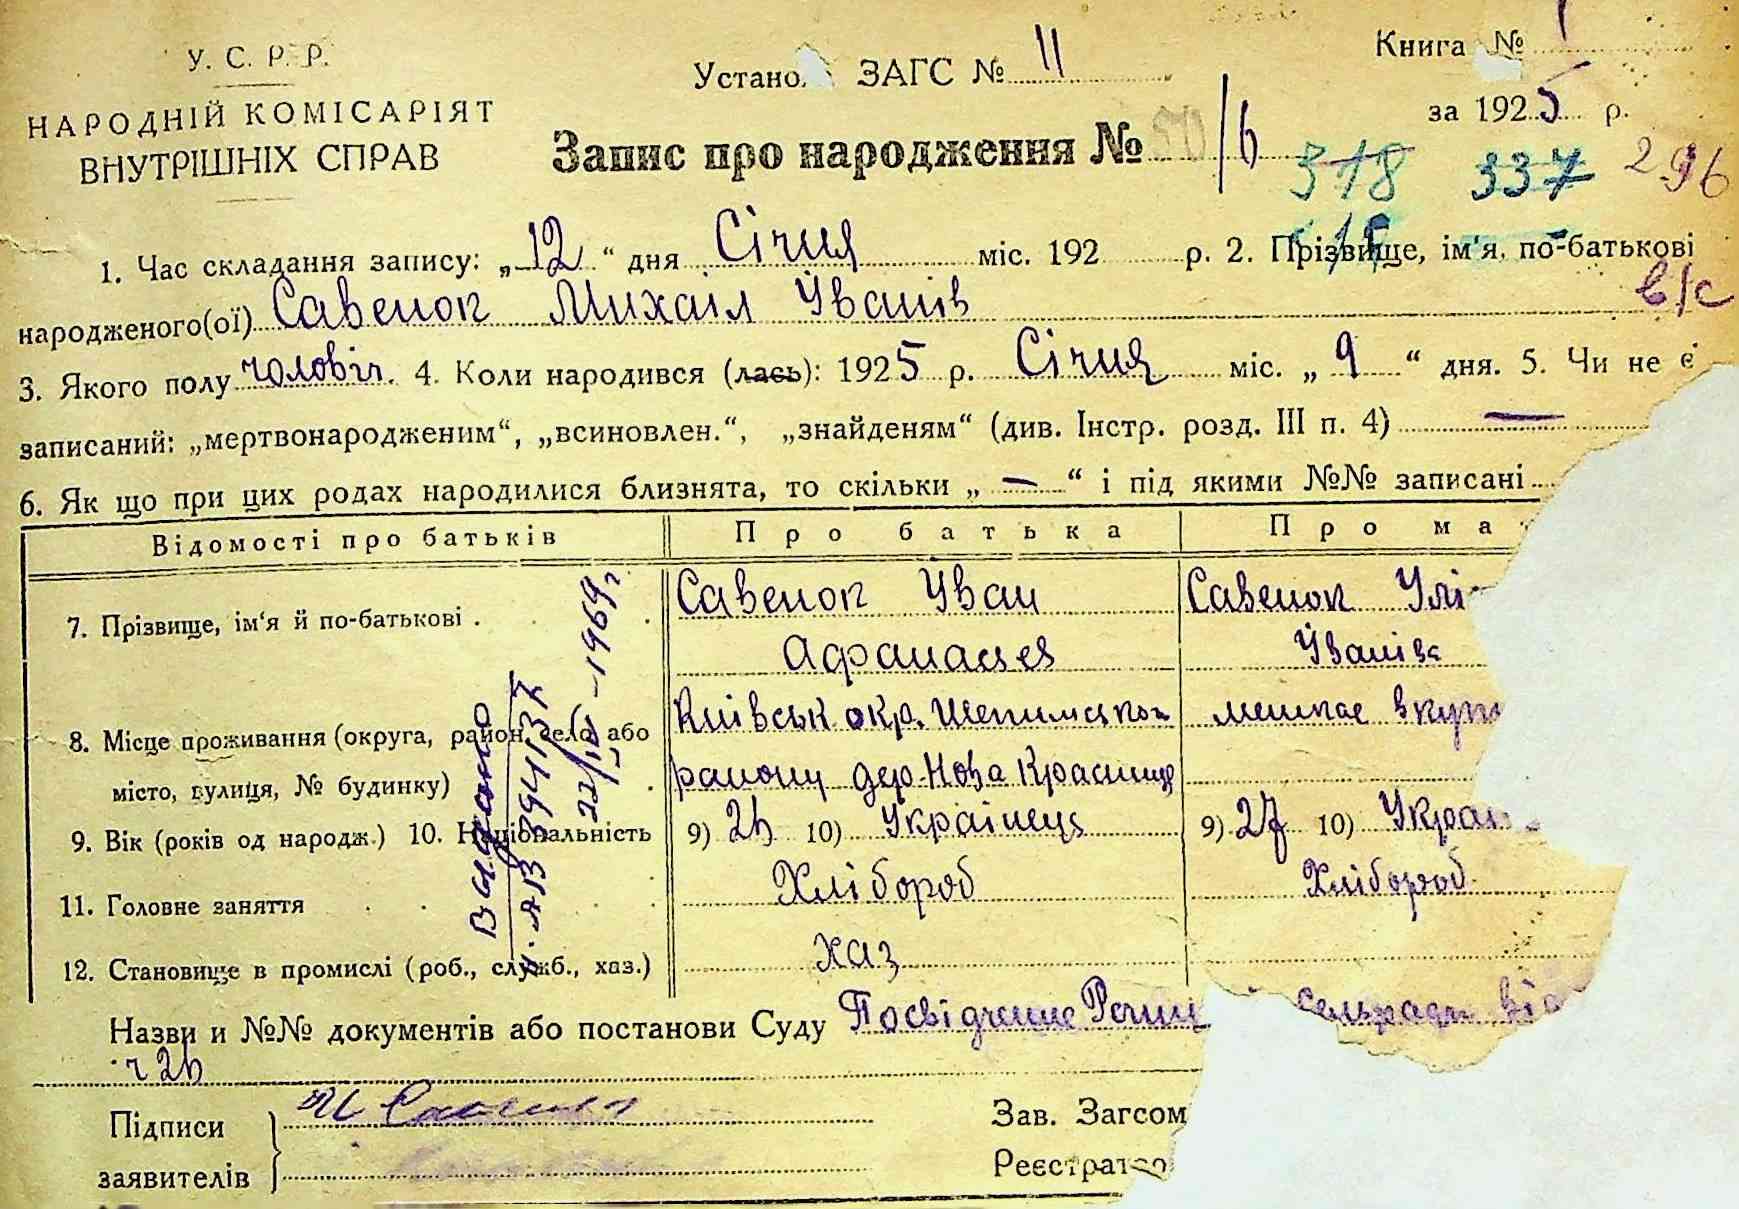 У. С. Р. Р.
НАРОДНІЙ КОМІСАРІЯТ
ВНУТРІШНІХ СПРАВ
Устано. ЗАГС № 11
Книга №
за 1925 р.
Запис про народження № 50/6
318 337 296
1. Час складання запису: „12“ дня Січня міс. 192 р. 2. Прізвище, ім'я, по-батькові
народженого(ої) Савенок Михаіл Уванів
3. Якого полу чоловіч. 4. Коли народився (лась): 1925 р. Січня міс. „9“ дня. 5. Чи не є
записаний: „мертвонародженим“, „всиновлен.“, „знайденям“ (див. Інстр. розд. III п. 4) —
6. Як що при цих родах народилися близнята, то скільки „—“ і під якими №№ записані
Відомості про батьків Про батька Про ма
7. Прізвище, ім'я й по-батькові Савенок Уван Савенок Улі
Афанасиев Уванівс
8. Місце проживання (округа, район, село або Київськ окр. мешкає вкуп
місто, вулиця, № будинку) району дер. Нова Красниця
9. Вік (років од народж.) 10. Національність 9) 25 10) Українець 9) 27 10) Украі
11. Головне заняття Хлібороб Хлібороб
12. Становище в промислі (роб., служб., хаз.) хаз
Видано
394137
22/IV-1969 г.
Назви и №№ документів або постанови Суду Посвідчение сельради від
ч 25
Підписи
заявителів
Зав. Загсом
Реєстрато